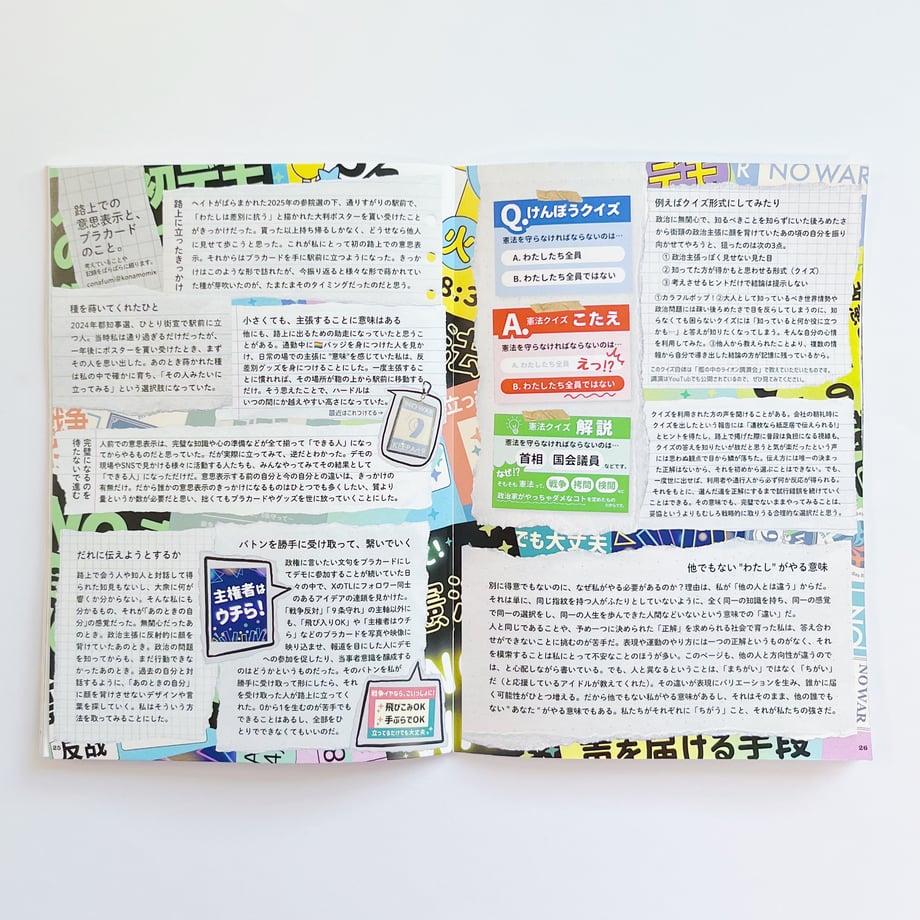 路上での
意思表示と、
プラカード
のこと。
考えていることや
記録をばらばらに綴ります。
conafumi@konamomix
路上に立ったきっかけ
ヘイトがばらまかれた2025年の参院選の下、通りすがりの駅前で、
「わたしは差別に抗う」と描かれた大判ポスターを貰い受けたこと
がきっかけだった。貰った以上持ち帰るしかなく、どうせなら他人
に見せて歩こうと思った。これが私にとって初の路上での意思表
示。それからはプラカードを手に駅前に立つようになった。きっか
けはこのような形で訪れたが、今振り返ると様々な形で蒔かれてい
た種が芽吹いたのが、たまたまそのタイミングだったのだと思う。
種を蒔いてくれたひと
2024年都知事選、ひとり街宣で駅前に立
つ人。当時私は通り過ぎるだけだったが、
一年後にポスターを貰い受けたとき、まず
その人を思い出した。あのとき蒔かれた種
は私の中で確かに育ち、「その人みたいに
立ってみる」という選択肢になっていた。
小さくても、主張することに意味はある
他にも、路上に出るための助走になっていたと思うこ
とがある。通勤中に🏳️‍🌈バッジを身につけた人を見か
け、日常の場での主張に"意味"を感じていた私は、反
差別グッズを身につけることにした。一度主張するこ
とに慣れれば、その場所が鞄の上から駅前に移動する
だけ。そう思えたことで、ハードルは
いつの間にか越えやすい高さになっていた。
最近はこれつけてる→
NO WAR
9
KEEP PEACE
完璧になるのを
待たないで進む
人前での意思表示は、完璧な知識や心の準備などが全て揃って「できる人」になっ
てからやるものだと思っていた。だが実際に立ってみて、逆だとわかった。デモの
現場やSNSで見かける様々に活動する人たちも、みんなやってみてその結果として
「できる人」に見えているだけだ。意思表示する前の自分と今の自分との違いは、きっかけの
有無だけ。だから誰かの意思表示のきっかけになるものはひとつでも多くしたい、質より
量というか数が必要だと思い、拙くてもプラカードやグッズを世に放っていくことにした。
だれに伝えようとするか
路上で会う人や知人と対話して得
られた知見もないし、大衆に何が
響くか分からない。そんな私にも
分かるもの、それが「あのときの自
分」の感覚だった。無関心だったあ
のとき。政治主張に反射的に顔を
背けていたあのとき。政治の問題
を知ってからも、まだ行動できな
かったあのとき。過去の自分と対
話するように、「あのときの自分」
に顔を背けさせないデザインや言
葉を探していく。私はそういう方
法を取ってみることにした。
バトンを勝手に受け取って、繋いでいく
政権に言いたい文句をプラカードにし
てデモに参加することが続いていた日
々の中で、XのTLにフォロワー同士
のあるアイデアの連鎖を見かけた。
「戦争反対」「9条守れ」の主軸以外に
も、「飛び入りOK」や「主権者はウチ
ら」などのプラカードを写真や映像に
映り込ませ、報道を目にした人にデモ
への参加を促したり、当事者意識を醸成する
のはどうかというものだった。そのバトンを私が
勝手に受け取って形にしたら、それ
を受け取った人が路上に立ってく
れた。0から1を生むのが苦手でも
できることはあるし、全部をひ
とりでできなくてもいいのだ。
主権者は
ウチら!
戦争イヤなら、こいっしょに!
飛びこみOK
手ぶらでOK
立ってるだけでも大丈夫
反戦
25
NO WAR
Q.けんぽうクイズ
憲法を守らなければならないのは…
A. わたしたち全員
B. わたしたち全員ではない
A. 憲法クイズ こたえ
憲法を守らなければならないのは…
A. わたしたち全員
えっ!?
B. わたしたち全員ではない
憲法クイズ 解説
憲法を守らなければならないのは…
首相 国会議員 などです。
なぜ!?
そもそも 憲法 って、戦争 拷問 検閲 など
政治家がやっちゃダメなコト を定めたもの
だからです。
例えばクイズ形式にしてみたり
政治に無関心で、知るべきことを知らずにいた後ろめたさ
から街頭の政治主張に顔を背けていたあの頃の自分を振り
向かせてやろうと、狙ったのは次の3点。
① 政治主張っぽく見せない見た目
② 知ってた方が得かもと思わせる形式(クイズ)
③ 考えさせるヒントだけで結論は提示しない
①カラフルポップ!②大人として知っているべき世界情勢や
政治問題には疎い後ろめたさで目を反らしてしまうのに、知
らなくても困らないクイズには「知っていると何か役に立つ
かも…」と答えが知りたくなってしまう。そんな自分の心情
を利用してみた。③他人から教えられたことより、複数の情
報から自分で導き出した結論の方が記憶に残っているから。
このクイズ自体は「檻の中のライオン講演会」で教えていただいたものです。
講演はYouTubeでも公開されているので、ぜひ見てみてください。
クイズを利用された方の声を聞けることがある。会社の朝礼時に
クイズを出したという報告には「違校なら紙芝居で伝えられる!」
とヒントを得たし、路上で掲げた際に普段は負担になる視線も、
クイズの答えを知りたいが故だと思うと気が楽だったという声
には思わぬ観点で目から鱗が落ちた。伝え方には唯一の決まっ
た正解はないから、それを初めから選ぶことはできない。でも、
一度世に出せば、利用者や通行人から必ず何か反応が得られる。
それをもとに、選んだ道を正解にするまで試行錯誤を続けていく
ことはできる。その意味でも、完璧でないままやってみることは、
妥協というよりもむしろ戦略的に取りうる合理的な選択だと思う。
でも大丈夫
他でもない"わたし"がやる意味
別に得意でもないのに、なぜ私がやる必要があるのか?理由は、私が「他の人とは違う」からだ。
それは単に、同じ指紋を持つ人がふたりとしていないように、全く同一の知識を持ち、同一の感覚
で同一の選択をし、同一の人生を歩んできた人間などいないという意味での「違い」だ。
人と同じであることや、予め一つに決められた「正解」を求められる社会で育った私は、答え合わ
せができないことに挑むのが苦手だ。表現や運動のやり方には一つの正解というものがなく、それ
を模索することは私にとって不安なことのほうが多い。このページも、他の人と方向性が違うので
は、と心配しながら書いている。でも、人と異なるということは、「まちがい」ではなく「ちがい」
だ(と応援しているアイドルが教えてくれた)。その違いが表現にバリエーションを生み、誰かに届
く可能性がひとつ増える。だから他でもない私がやる意味があるし、それはそのまま、他の誰でも
ない"あなた"がやる意味でもある。私たちがそれぞれに「ちがう」こと、それが私たちの強さだ。
NO WAR
声を届ける手段
26